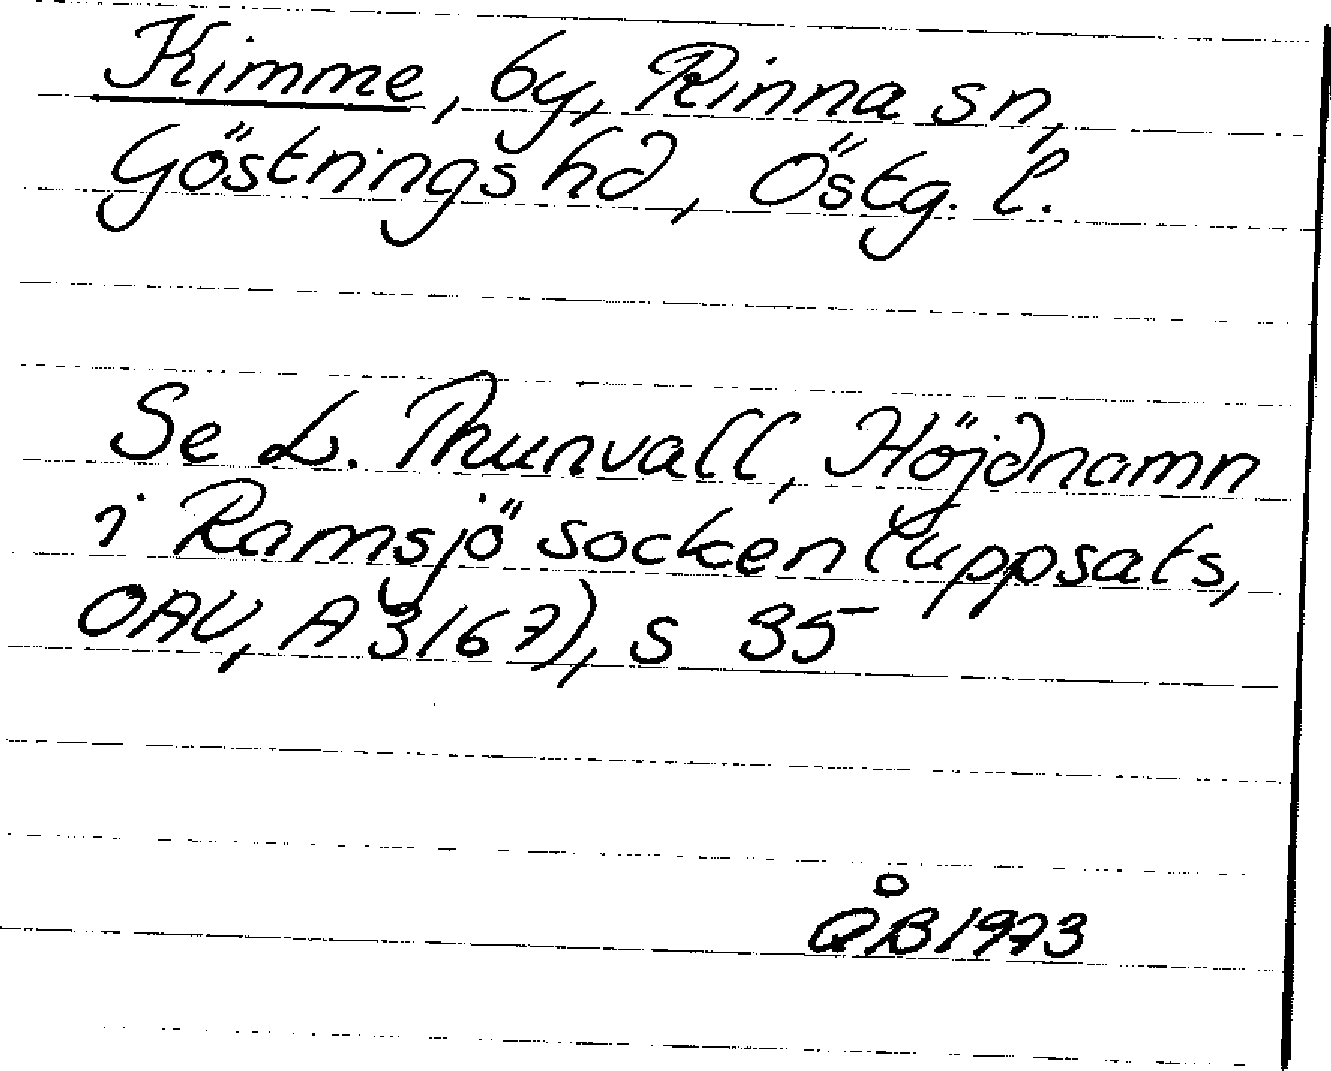 Kimme, by, Rinna sn,
Göstrings hd, Östg. l.
Se L. Thunvall, Höjdnamn
i Ramsjö socken (uppsats,
OAU, A 3167), s 35
ÅB 1973